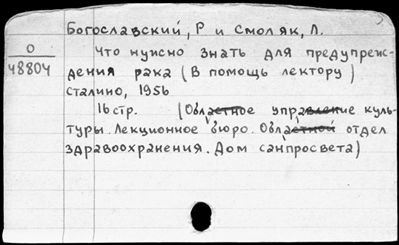 Богославский, Р и Смоляк, Л.
О
48804
Что нужно знать для предупреж-
дения рака (В помощь лектору)
Сталино, 1956
16 стр. (Областное управление куль-
туры. Лекционное бюро. Областной отдел
здравоохранения. Дом санпросвета)